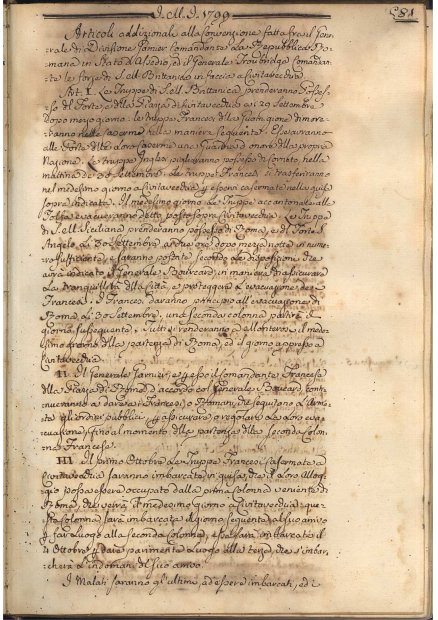 J. M. J. 1799
581
Articoli addizionali alla Convenzione fatta fra il Gene-
rale di Divisione Garnier Comandante la Repubblica Ro-
mana in Stato d'Assedio, ed il Generale Troubridge Comandan-
te le forze di S. M. Britanica in faccia a Civitavecchia
Art. I. Le Truppe di S. M. Britanica prenderanno Posses-
so del Forte e della Piazza di Civitavecchia ai 29 Settembre
Dopo mezzo giorno: le Truppe Francesi della Guarnigione dimore-
ranno nelle caserme nella maniera seguente.
alle Porte delle loro caserme una Guardia d'onore della propria
Nazione. Le truppe Inglesi piglieranno possesso di Corneto, nella
mattina de' 30 Settembre. Le truppe Francesi si trasferiranno
nel medesimo giorno a Civitavecchia, e saran casermate nella guisa
sopra indicata. Il medesimo giorno le Truppe accantonate alla
Tolfa evacueranno detto posto sopra Civitavecchia. Le Truppe
di S. M. Siciliana prenderanno possesso di Roma, e del Forte S.
Angelo li 30 Settembre a due ore dopo mezza notte in nume-
ro sufficiente, e saranno postate secondo le disposizioni che
avrà indicate il Generale Bouchard, in maniera di assicurare
la tranquillità della Città, e proteggere l'evacuazione dei
Francesi. I Francesi daranno principio all'evacuazione di
Roma, li 30 Settembre, una seconda colonna partirà il
giorno susseguente. Tutti si renderanno a Monterone il mede-
simo giorno della partenza di Roma, ed il giorno appresso a
Civitavecchia
II. Il Generale Garnier, e il Comandante Francese
della Piazza di Roma d'accordo col Generale Bouchard, conti-
nueranno a dare a' Francesi, o Romani, che seguitano l'Arma-
ta gli ordini pubblici, ed assicurare o regolare la loro eva-
cuazione, fino al momento della partenza della seconda Colon-
na Francese.
III. Il primo Ottobre la Truppa Francese Casermata a
Civitavecchia saranno imbarcata in guisa, che il loro Allog-
gio possa essere occupato dalla prima Colonna veniente di
Roma, che verrà il medesimo giorno a Civitavecchia: que-
sta Colonna sarà imbarcata il giorno seguente al suo arrivo
e farà luogo alla seconda Colonna, essa sarà imbarcata il
4 Ottobre, e darà parimenti luogo alla terza, che s'imbar-
cherà l'indomani del suo arrivo.
I Malati saranno gl'ultimi ad essere imbarcati, ed i